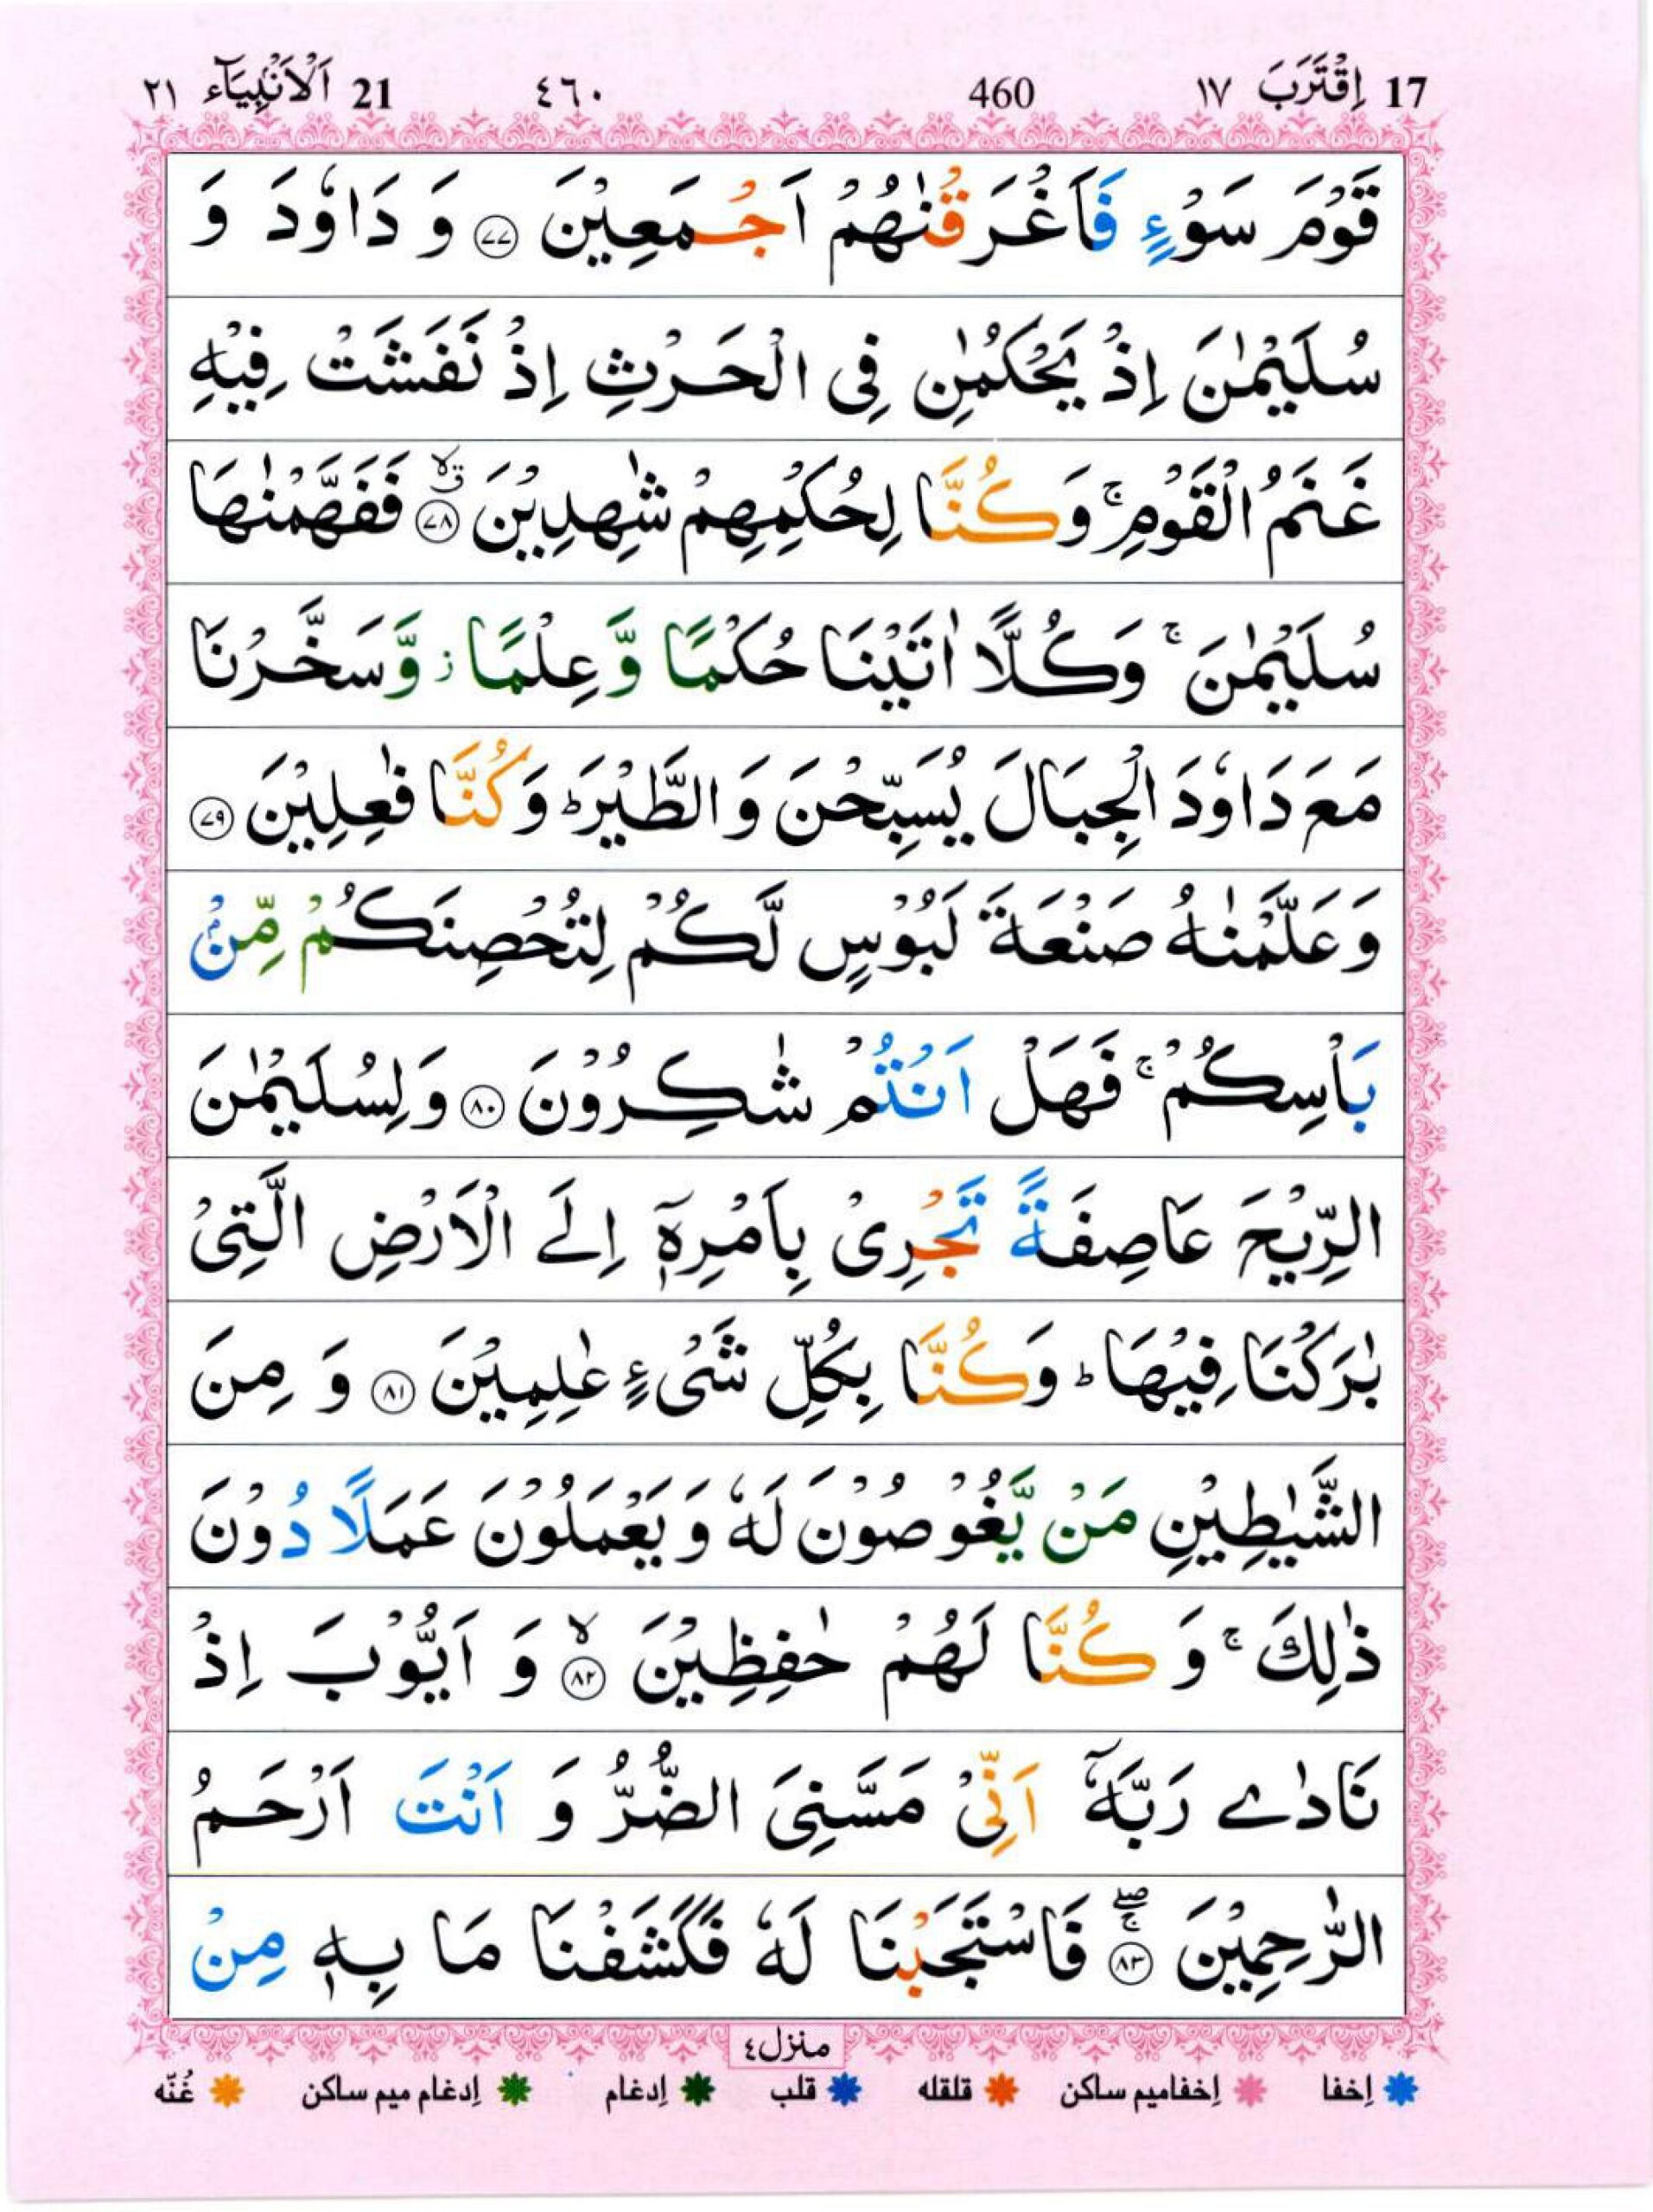 17 اِقْتَرَبَ ١٧ 460 ٤٦٠ 21 اَلْاَنْۢبِيَآء ٢١
قَوْمَ سَوْءٍ فَاَغْرَقْنٰهُمْ اَجْمَعِيْنَ ﴿٧٧﴾ وَ دَاوٗدَ وَ
سُلَيْمٰنَ اِذْ يَحْكُمٰنِ فِى الْحَرْثِ اِذْ نَفَشَتْ فِيْهِ
غَنَمُ الْقَوْمِ ۚ وَ كُنَّا لِحُكْمِهِمْ شٰهِدِيْنَ ﴿٧٨﴾ۙق فَفَهَّمْنٰهَا
سُلَيْمٰنَ ۚ وَ كُلًّا اٰتَيْنَا حُكْمًا وَّ عِلْمًا ز وَّ سَخَّرْنَا
مَعَ دَاوٗدَ الْجِبَالَ يُسَبِّحْنَ وَ الطَّيْرَ ؕ وَ كُنَّا فٰعِلِيْنَ ﴿٧٩﴾
وَ عَلَّمْنٰهُ صَنْعَةَ لَبُوْسٍ لَّكُمْ لِتُحْصِنَكُمْ مِّنْۢ
بَاْسِكُمْ ۚ فَهَلْ اَنْتُمْ شٰكِرُوْنَ ﴿٨٠﴾ وَ لِسُلَيْمٰنَ
الرِّيْحَ عَاصِفَةً تَجْرِىْ بِاَمْرِهٖۤ اِلَى الْاَرْضِ الَّتِىْ
بٰرَكْنَا فِيْهَا ؕ وَ كُنَّا بِكُلِّ شَىْءٍ عٰلِمِيْنَ ﴿٨١﴾ وَ مِنَ
الشَّيٰطِيْنِ مَنْ يَّغُوْصُوْنَ لَهٗ وَ يَعْمَلُوْنَ عَمَلًا دُوْنَ
ذٰلِكَ ۚ وَ كُنَّا لَهُمْ حٰفِظِيْنَ ﴿٨٢﴾ۙ وَ اَيُّوْبَ اِذْ
نَادٰى رَبَّهٗۤ اَنِّىْ مَسَّنِىَ الضُّرُّ وَ اَنْتَ اَرْحَمُ
الرّٰحِمِيْنَ ﴿٨٣﴾ۚۖ فَاسْتَجَبْنَا لَهٗ فَكَشَفْنَا مَا بِهٖ مِنْ
منزل ٤
اِخفا اِخفامیم ساکن قلقله قلب اِدغام اِدغام میم ساکن غُنّه